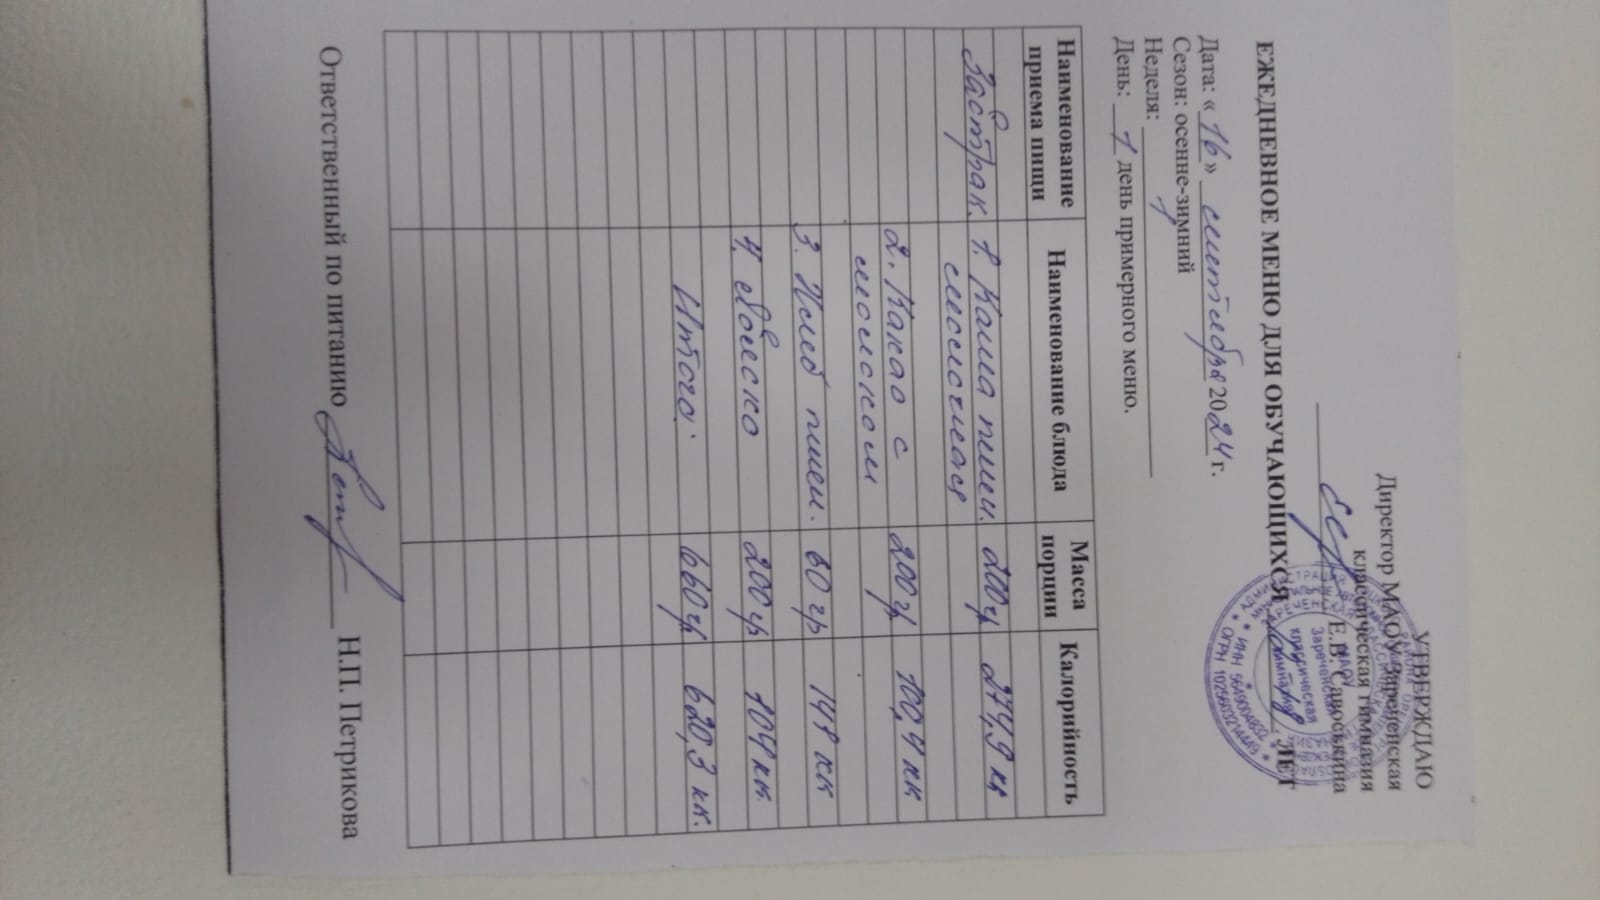 УТВЕРЖДАЮ
Директор МАОУ Зареченская
классическая гимназия
Е.В. Савоськина
ЕЖЕДНЕВНОЕ МЕНЮ ДЛЯ ОБУЧАЮЩИХСЯ ЛЕТ
Дата: «16» сентября 2024 г.
Сезон: осенне-зимний
Неделя: 1
День: 1 день примерного меню.
Наименование приема пищи Наименование блюда Масса порции Калорийность
Завтрак. 1. Каша пшен. 200гр 274,9 кк
молочная
2. Какао с 200гр 100,4 кк
молоком
3. Хлеб пшен. 60 гр 141 кк
4. яблоко 200гр 104 кк.
Итого: 660гр 620,3 кк.
Ответственный по питанию Н.П. Петрикова
МАОУ
Зареченская
классическая
гимназия
ИНН 5649004832
ОГРН 1025603214449